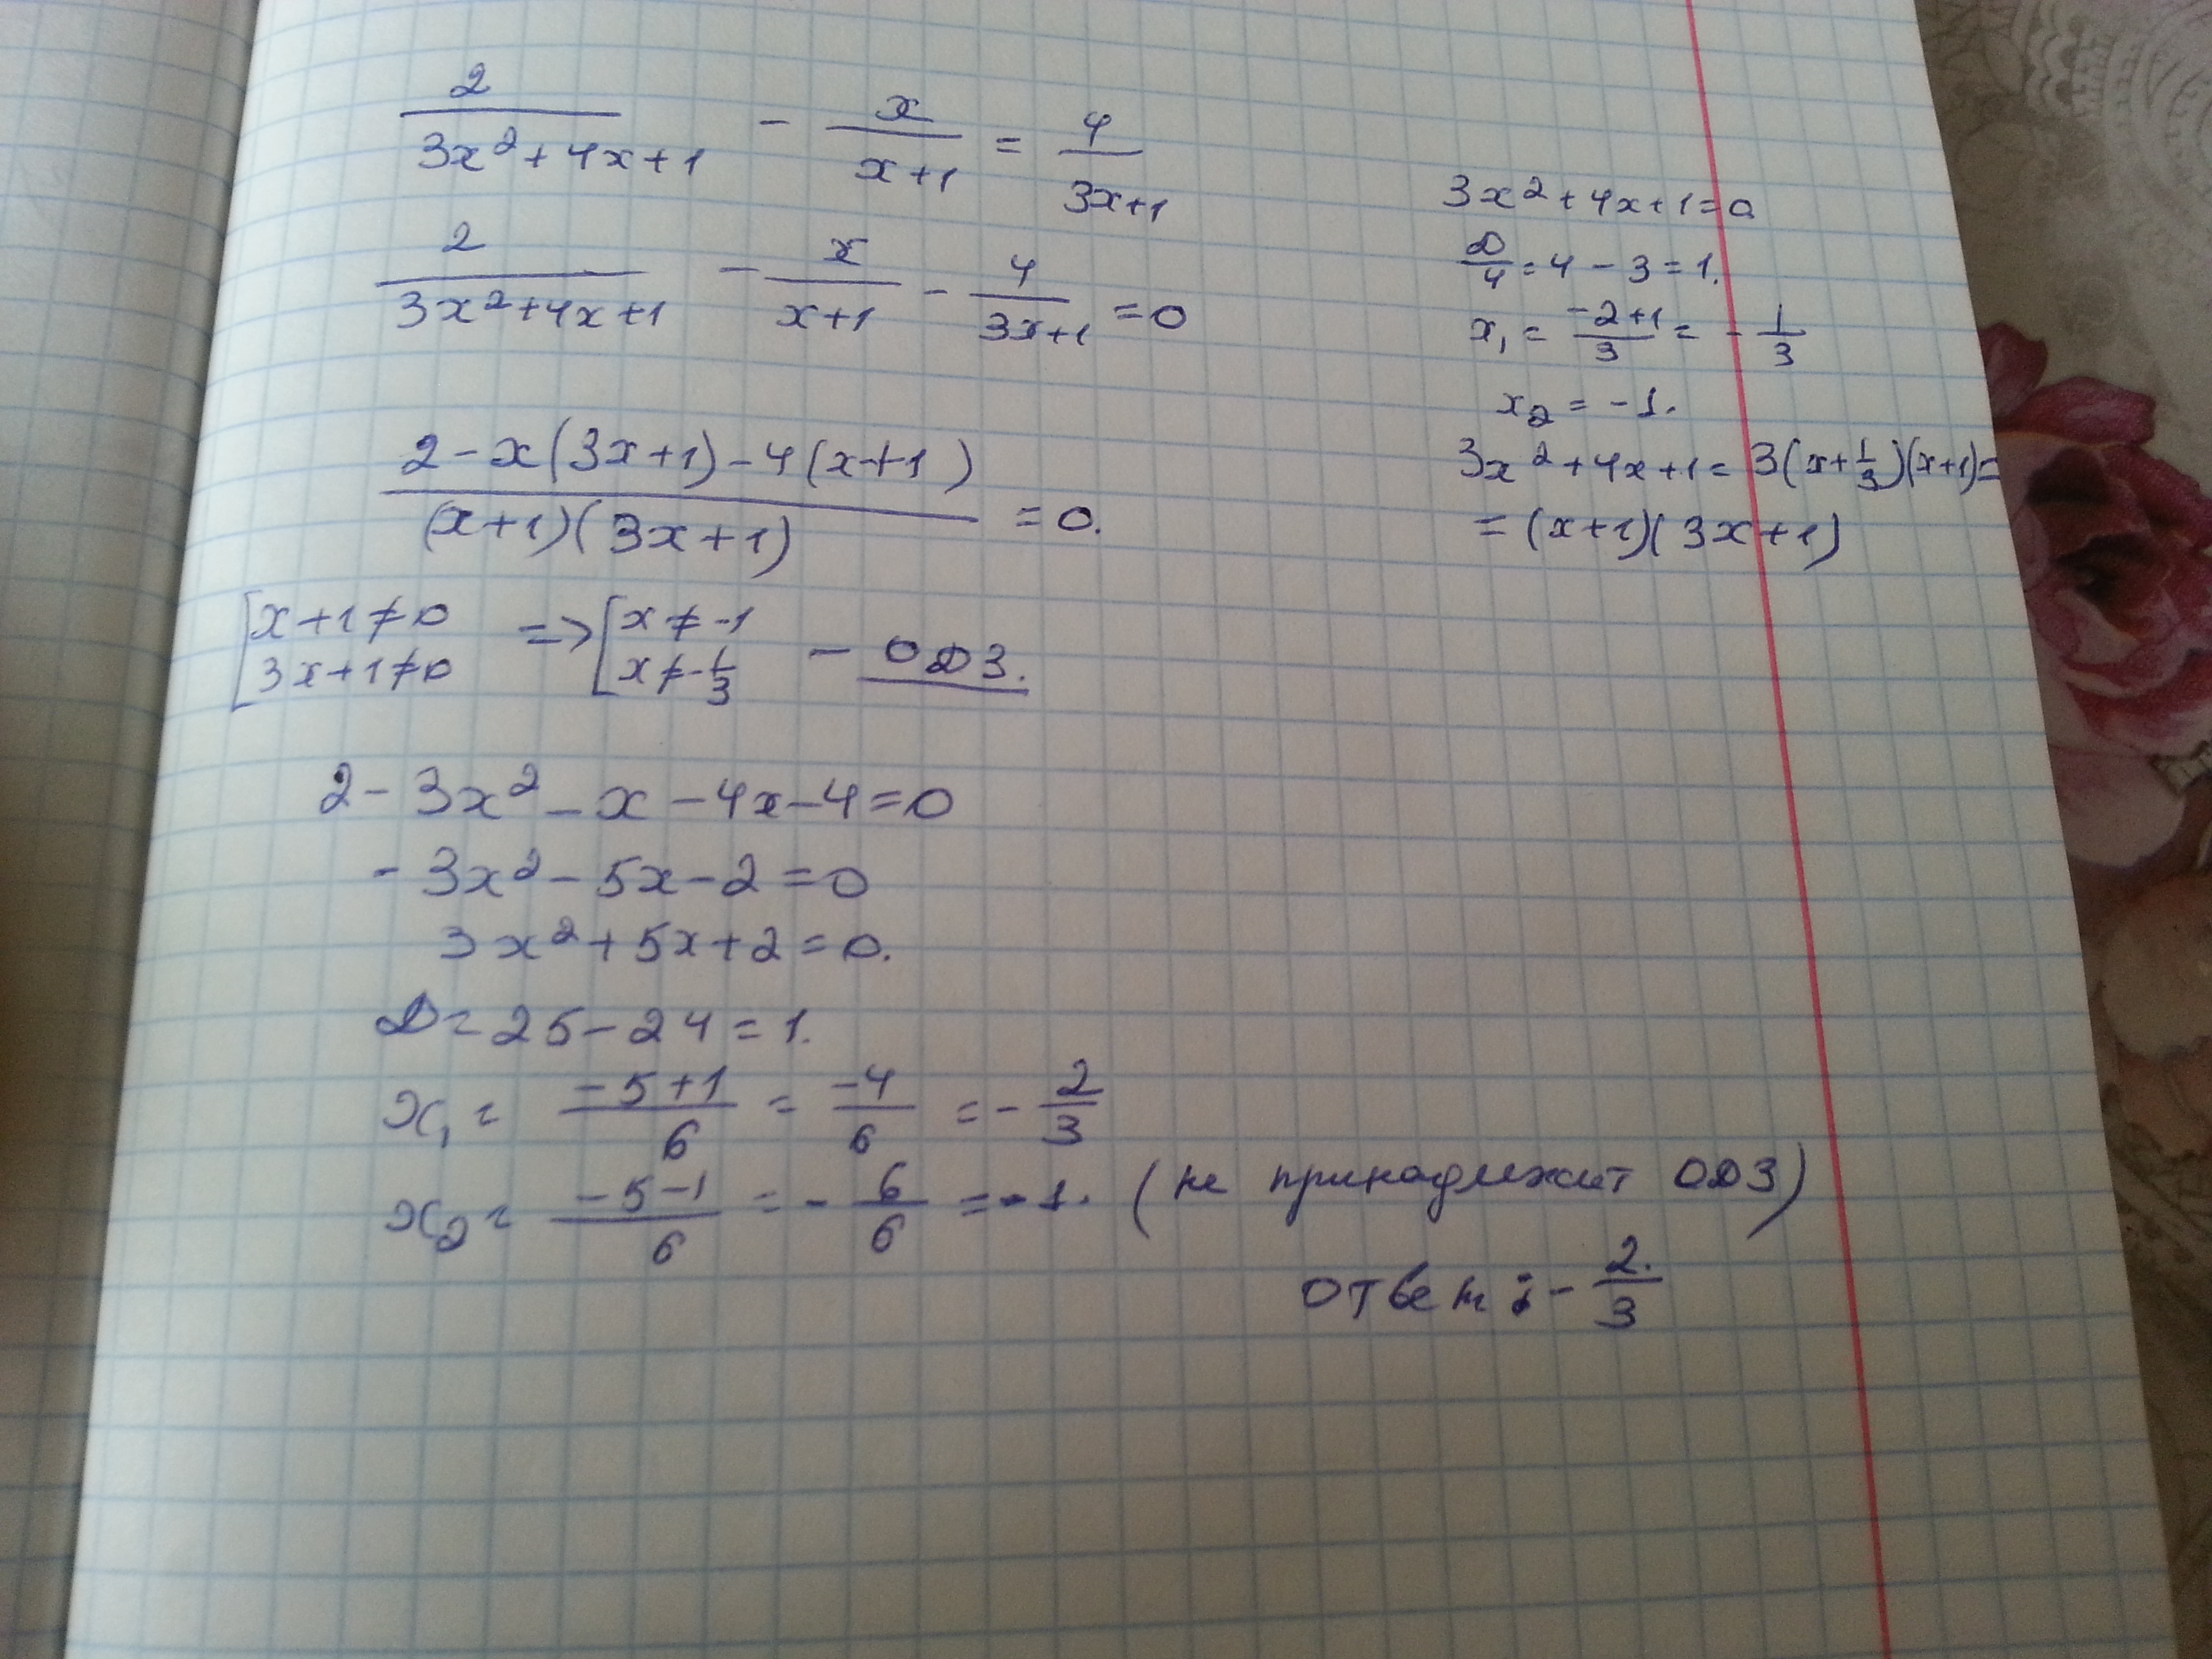 2/(3x²+4x+1) - x/(x+1) = 4/(3x+1)
2/(3x²+4x+1) - x/(x+1) - 4/(3x+1) = 0
(2-x(3x+1)-4(x+1))/((x+1)(3x+1)) = 0.
[x+1≠0 => [x≠-1
[3x+1≠0 [x≠-1/3 - ОДЗ.
2-3x²-x-4x-4=0
-3x²-5x-2=0
3x²+5x+2=0.
D=25-24=1.
x₁= (-5+1)/6 = -4/6 = -2/3
x₂= (-5-1)/6 = -6/6 = -1. (не принадлежит ОДЗ)
ответ: -2/3
3x²+4x+1=0
D/4=4-3=1.
x₁= (-2+1)/3 = -1/3
x₂=-1.
3x²+4x+1=3(x+1/3)(x+1)=
=(x+1)(3x+1)